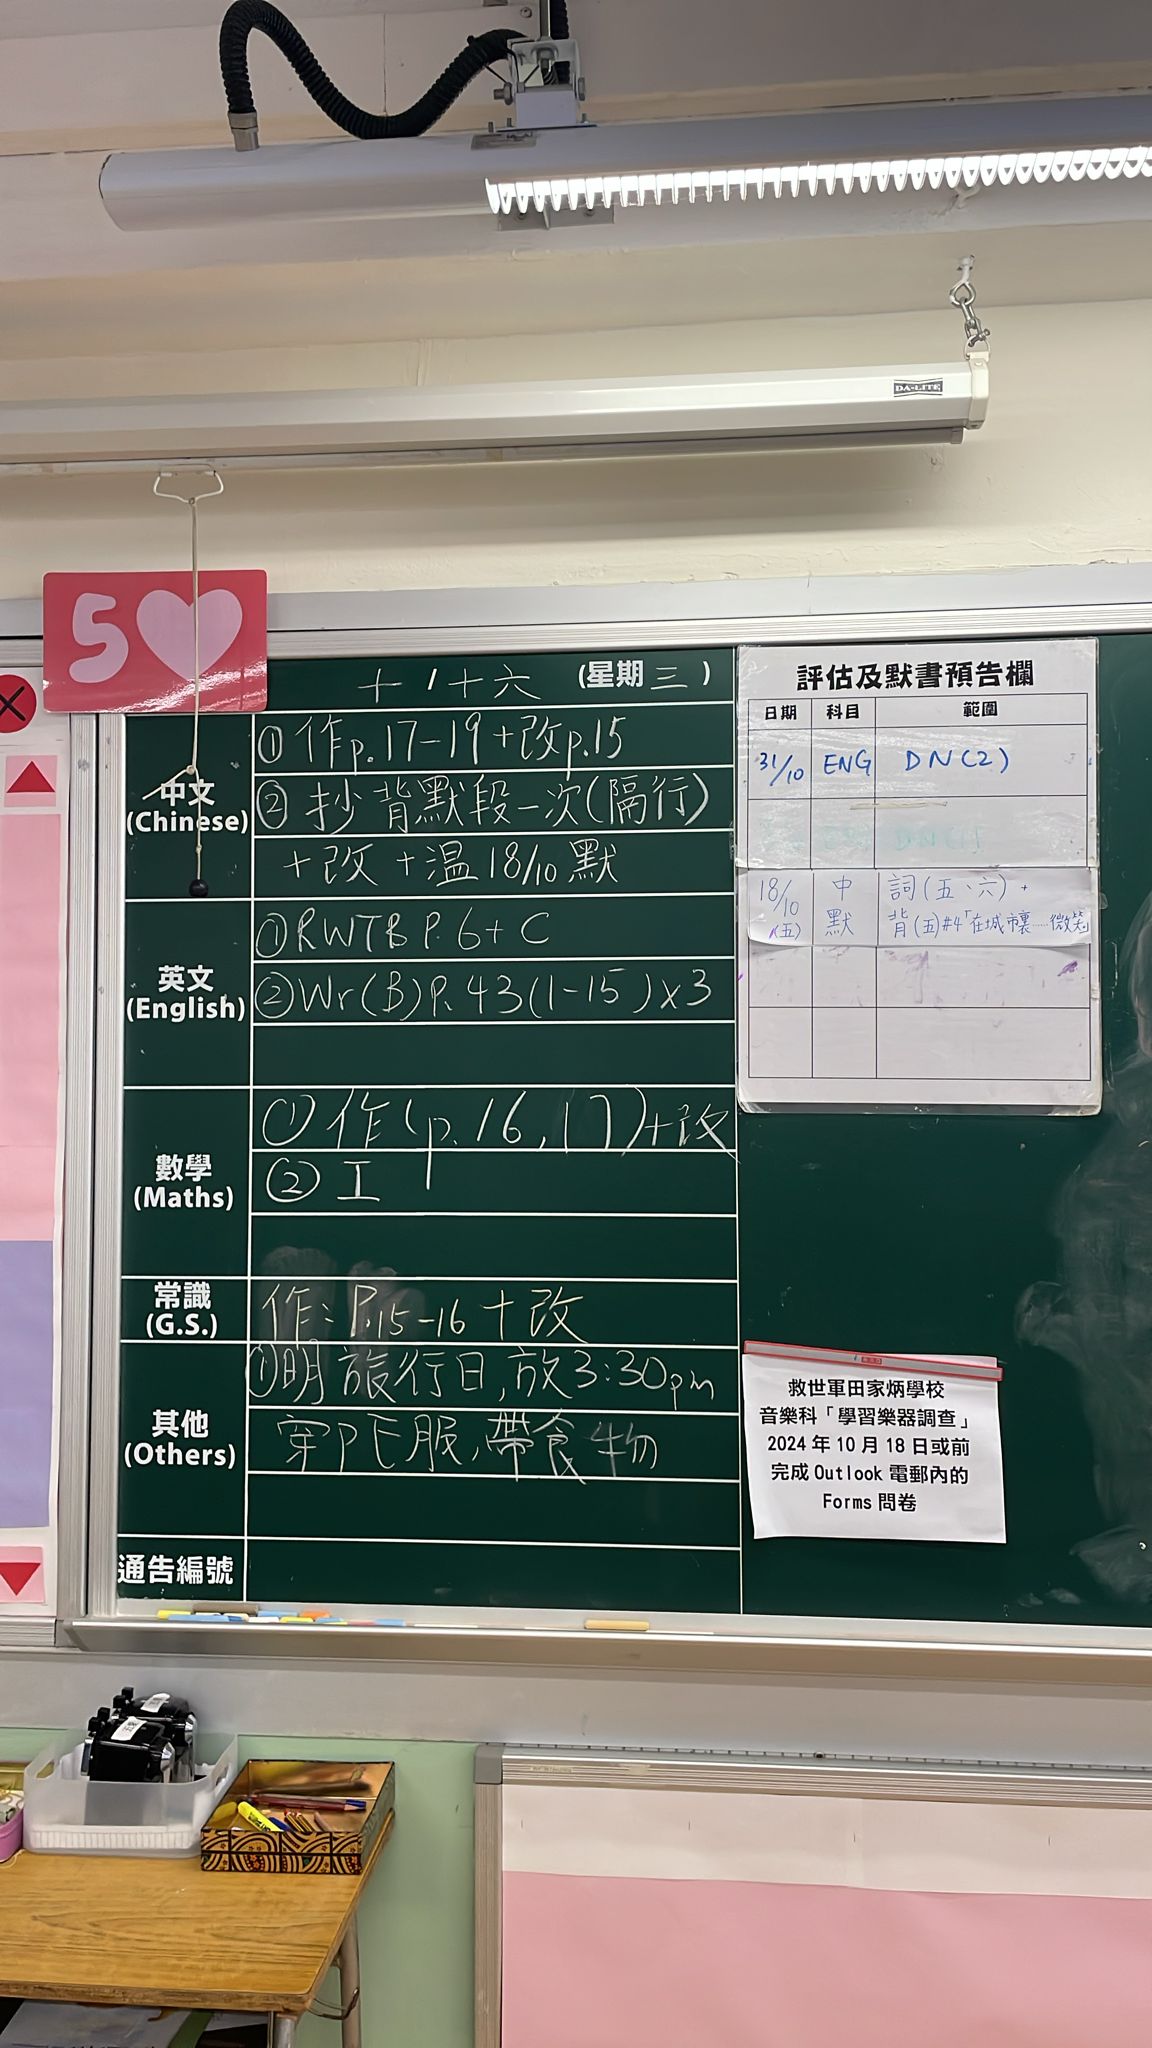 DA-LITE
5
十/十六 (星期三)
中文
(Chinese)
①作p.17-19+改p.15
②抄背默段一次(隔行)
+改+温18/10默
英文
(English)
①RWTB P.6+C
②Wr(B)P.43(1-15)x3
數學
(Maths)
①作(p.16,17)+改
②工
常識
(G.S.)
作:P.15-16+改
其他
(Others)
①明旅行日,放3:30pm
穿PE服,帶食物
通告編號
評估及默書預告欄
日期 科目 範圍
31/10 ENG DN(2)
18/10 (五) 中默 詞(五、六),
背(五)#4「在城市裏……微笑
救世軍田家炳學校
音樂科「學習樂器調查」
2024年10月18日或前
完成Outlook電郵內的
Forms問卷